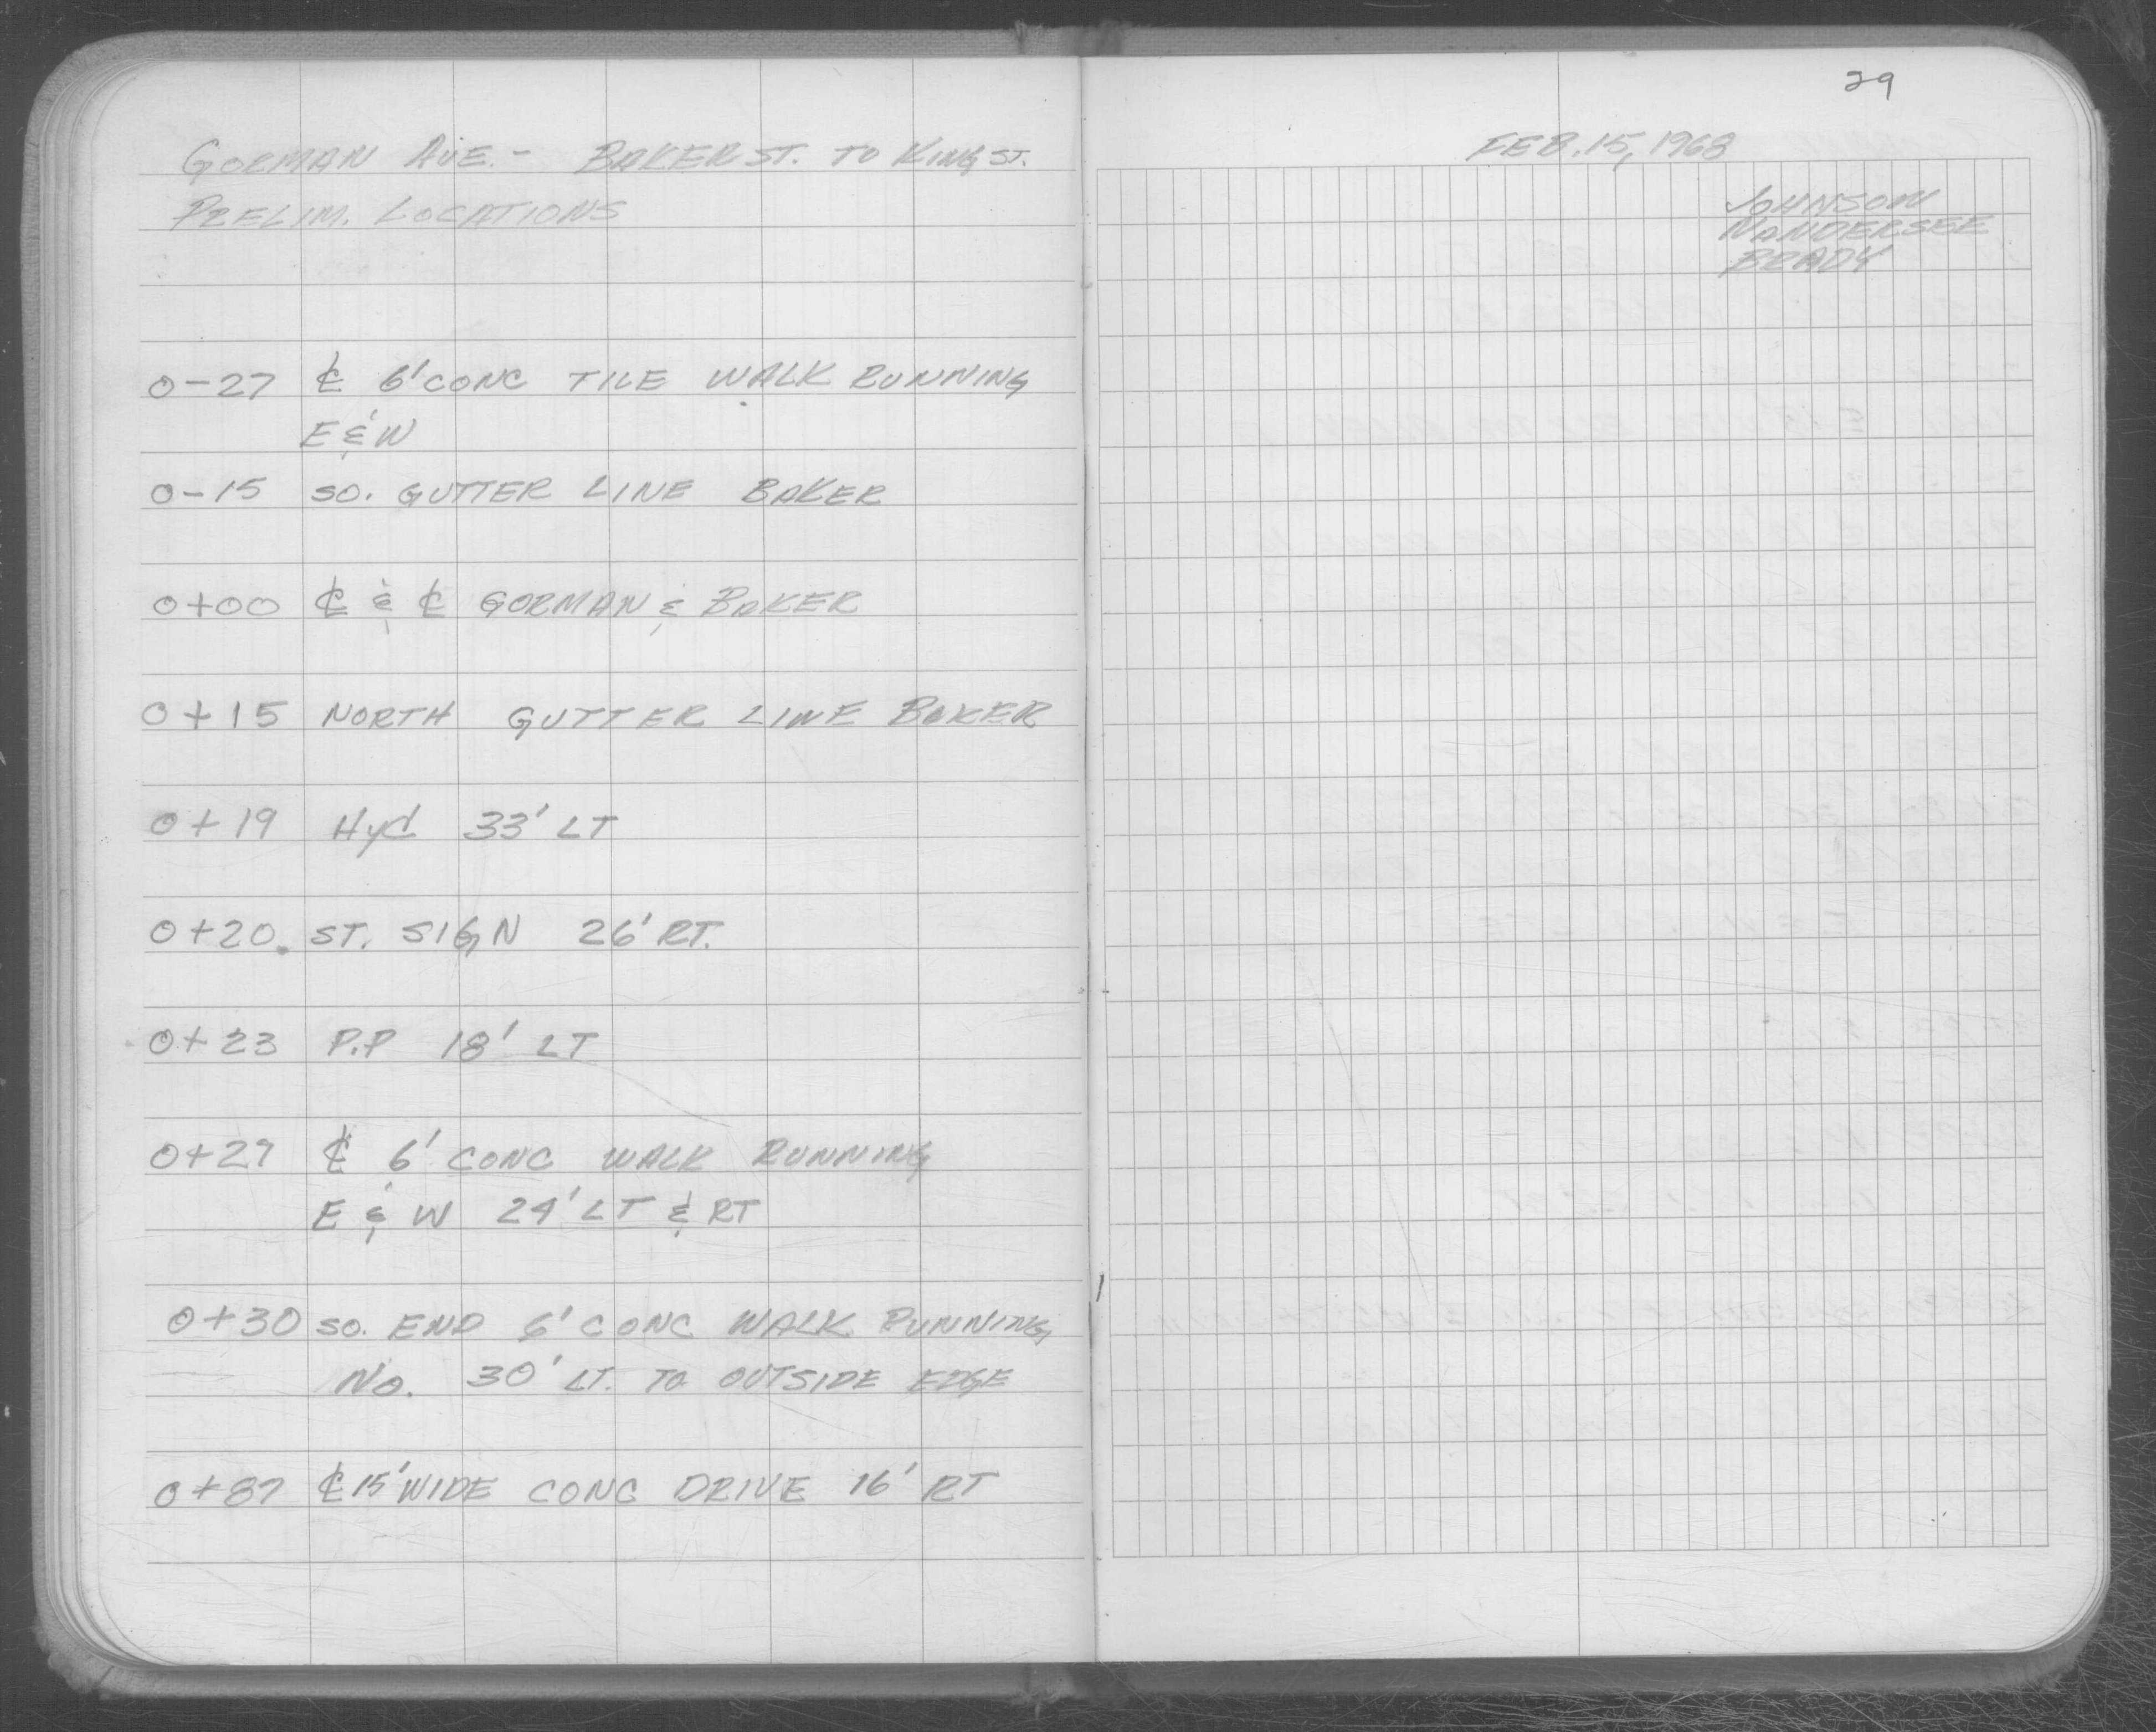 GORMAN AVE. - BAKER ST. TO KING ST.
PRELIM. LOCATIONS
0-27 ℄ 6' CONC TILE WALK RUNNING
E & W
0-15 SO. GUTTER LINE BAKER
0+00 ℄ & ℄ GORMAN & BAKER
0+15 NORTH GUTTER LINE BAKER
0+19 Hyd 33' LT
0+20 ST. SIGN 26' RT.
0+23 P.P 18' LT
0+27 ℄ 6' CONC WALK RUNNING
E & W 24' LT & RT
0+30 SO. END 6' CONC WALK RUNNING
NO. 30' LT. TO OUTSIDE EDGE
0+87 ℄ 15' WIDE CONC DRIVE 16' RT
29
FEB. 15, 1968
JOHNSON
NANDERSEE
BRADY